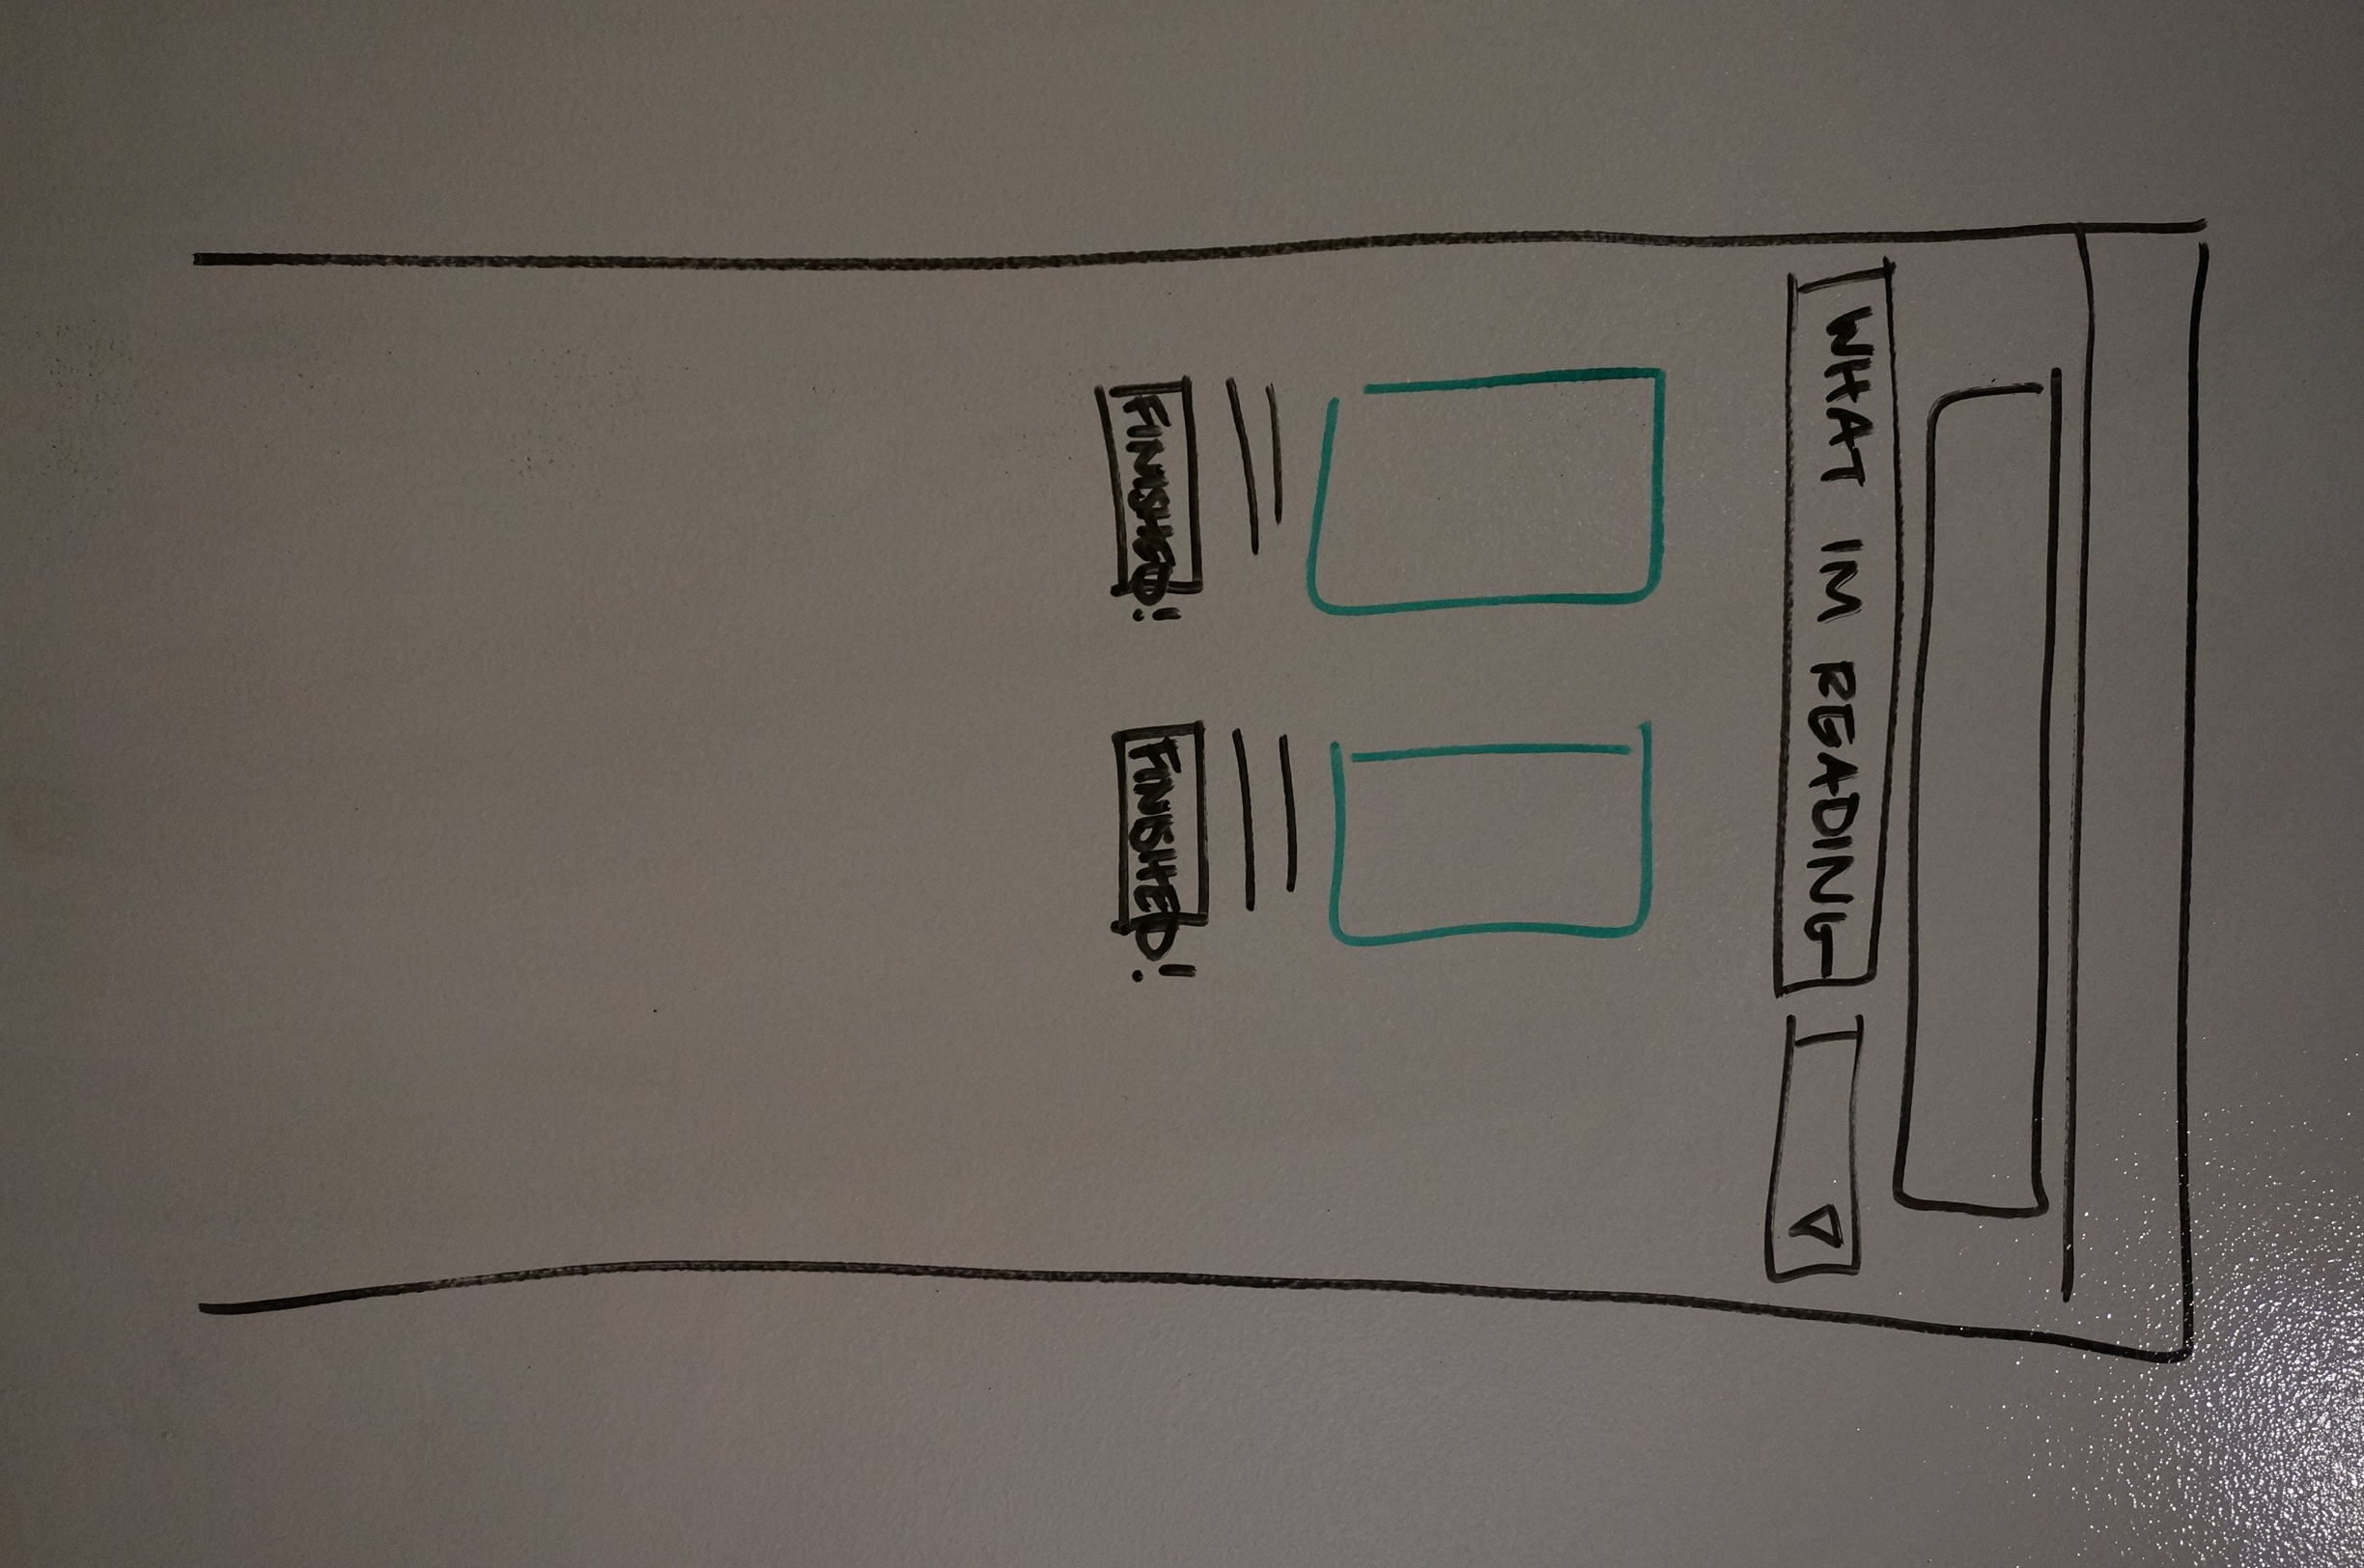 WHAT IM READING
FINISHED!
FINISHED!